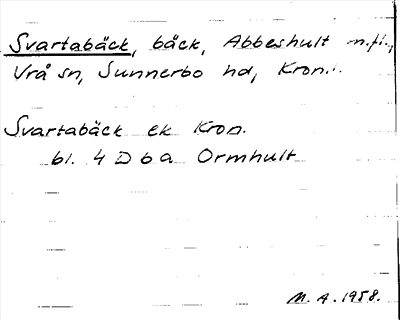 Svartabäck, bäck, Abbeshult m.fl.,
Vrå sn, Sunnerbo hd, Kron.l.
Svartabäck ek Kron.
bl. 4 D 6 a Ormhult
M. A. 1958.